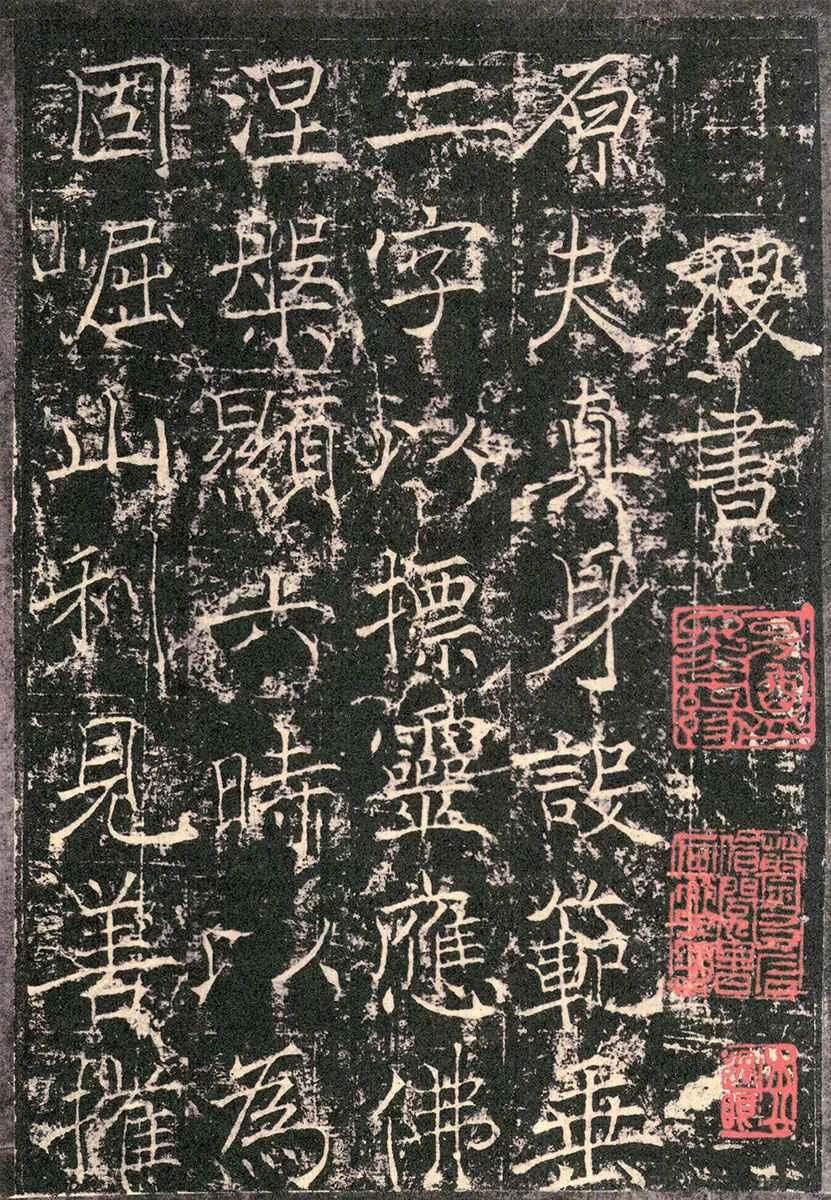 稷書
原夫真身設範垂
二字以摽靈應佛
涅槃顯六時以為
固崛山利見善摧